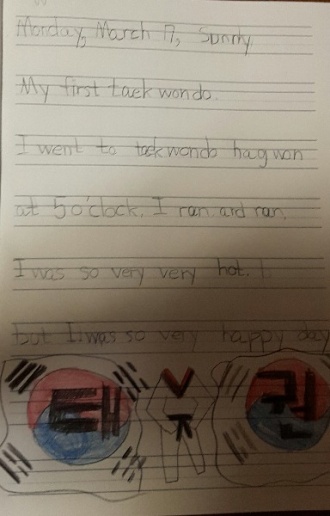 Monday, March 17, Sunny
My first taekwondo.
I went to taekwondo hagwon
at 5 o'clock. I ran and ran.
I was so very very hot.
but I was so very happy day
태 권